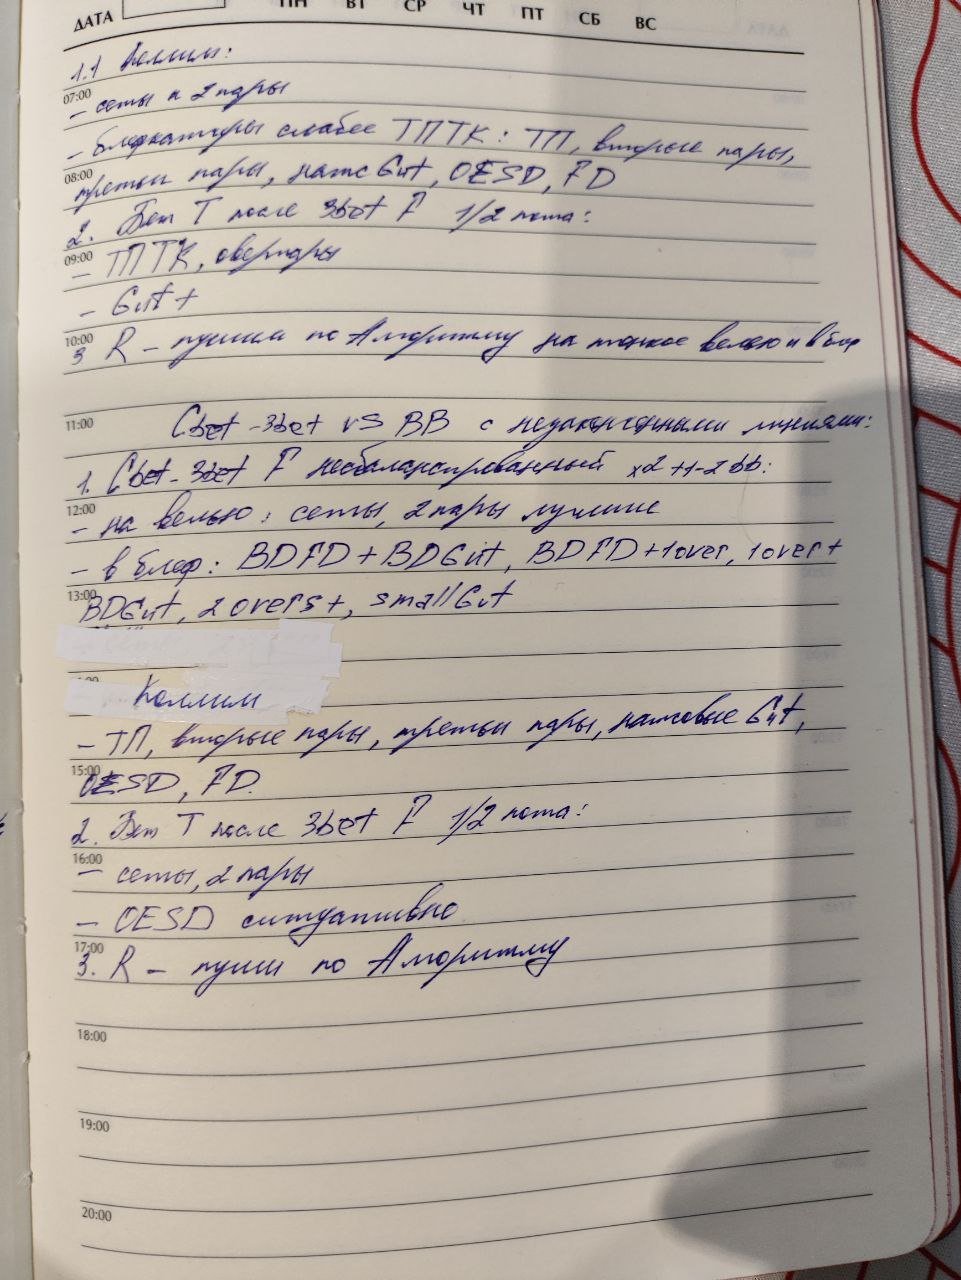 ДАТА
ПН ВТ СР ЧТ ПТ СБ ВС
1.1 Коллим:
07:00
- сеты и 2 пары
- блефкатчеры слабее ТПТК: ТП, вторые пары,
08:00
третьи пары, натс Gut, OESD, FD
2. Бет T после 3bet F 1/2 пота:
09:00
- ТПТК, оверпары
- Gut +
10:00
3 R - пушим по Алгоритму на тонкое велью и в блеф
11:00
Cbet-3bet vs BB с незаконченными линиями:
1. Cbet-3bet F несбалансированный x2 +1-2 bb:
12:00
- на велью: сеты, 2 пары лучшие
- в блеф: BDFD + BDGut, BDFD + 1 over, 1 over +
13:00
BDGut, 2 overs +, small Gut
Коллим
- ТП, вторые пары, третьи пары, натсовые Gut,
15:00
OESD, FD.
2. Бет T после 3bet F 1/2 пота:
16:00
- сеты, 2 пары
- OESD ситуативно
17:00
3. R - пуш по Алгоритму
18:00
19:00
20:00